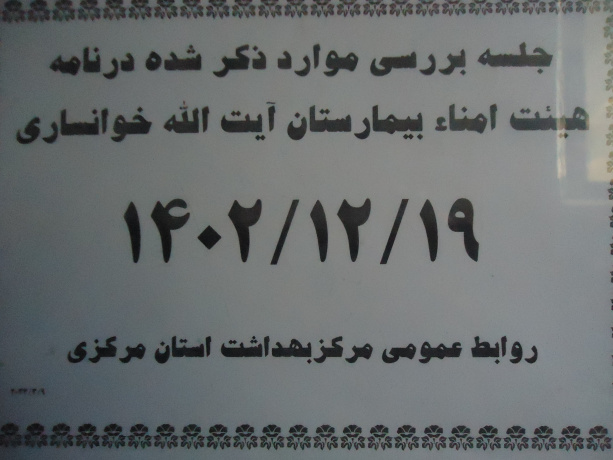 جلسه بررسی موارد ذکر شده درنامه
هیئت امناء بیمارستان آیت الله خوانساری
۱۴۰۲/۱۲/۱۹
روابط عمومی مرکزبهداشت استان مرکزی